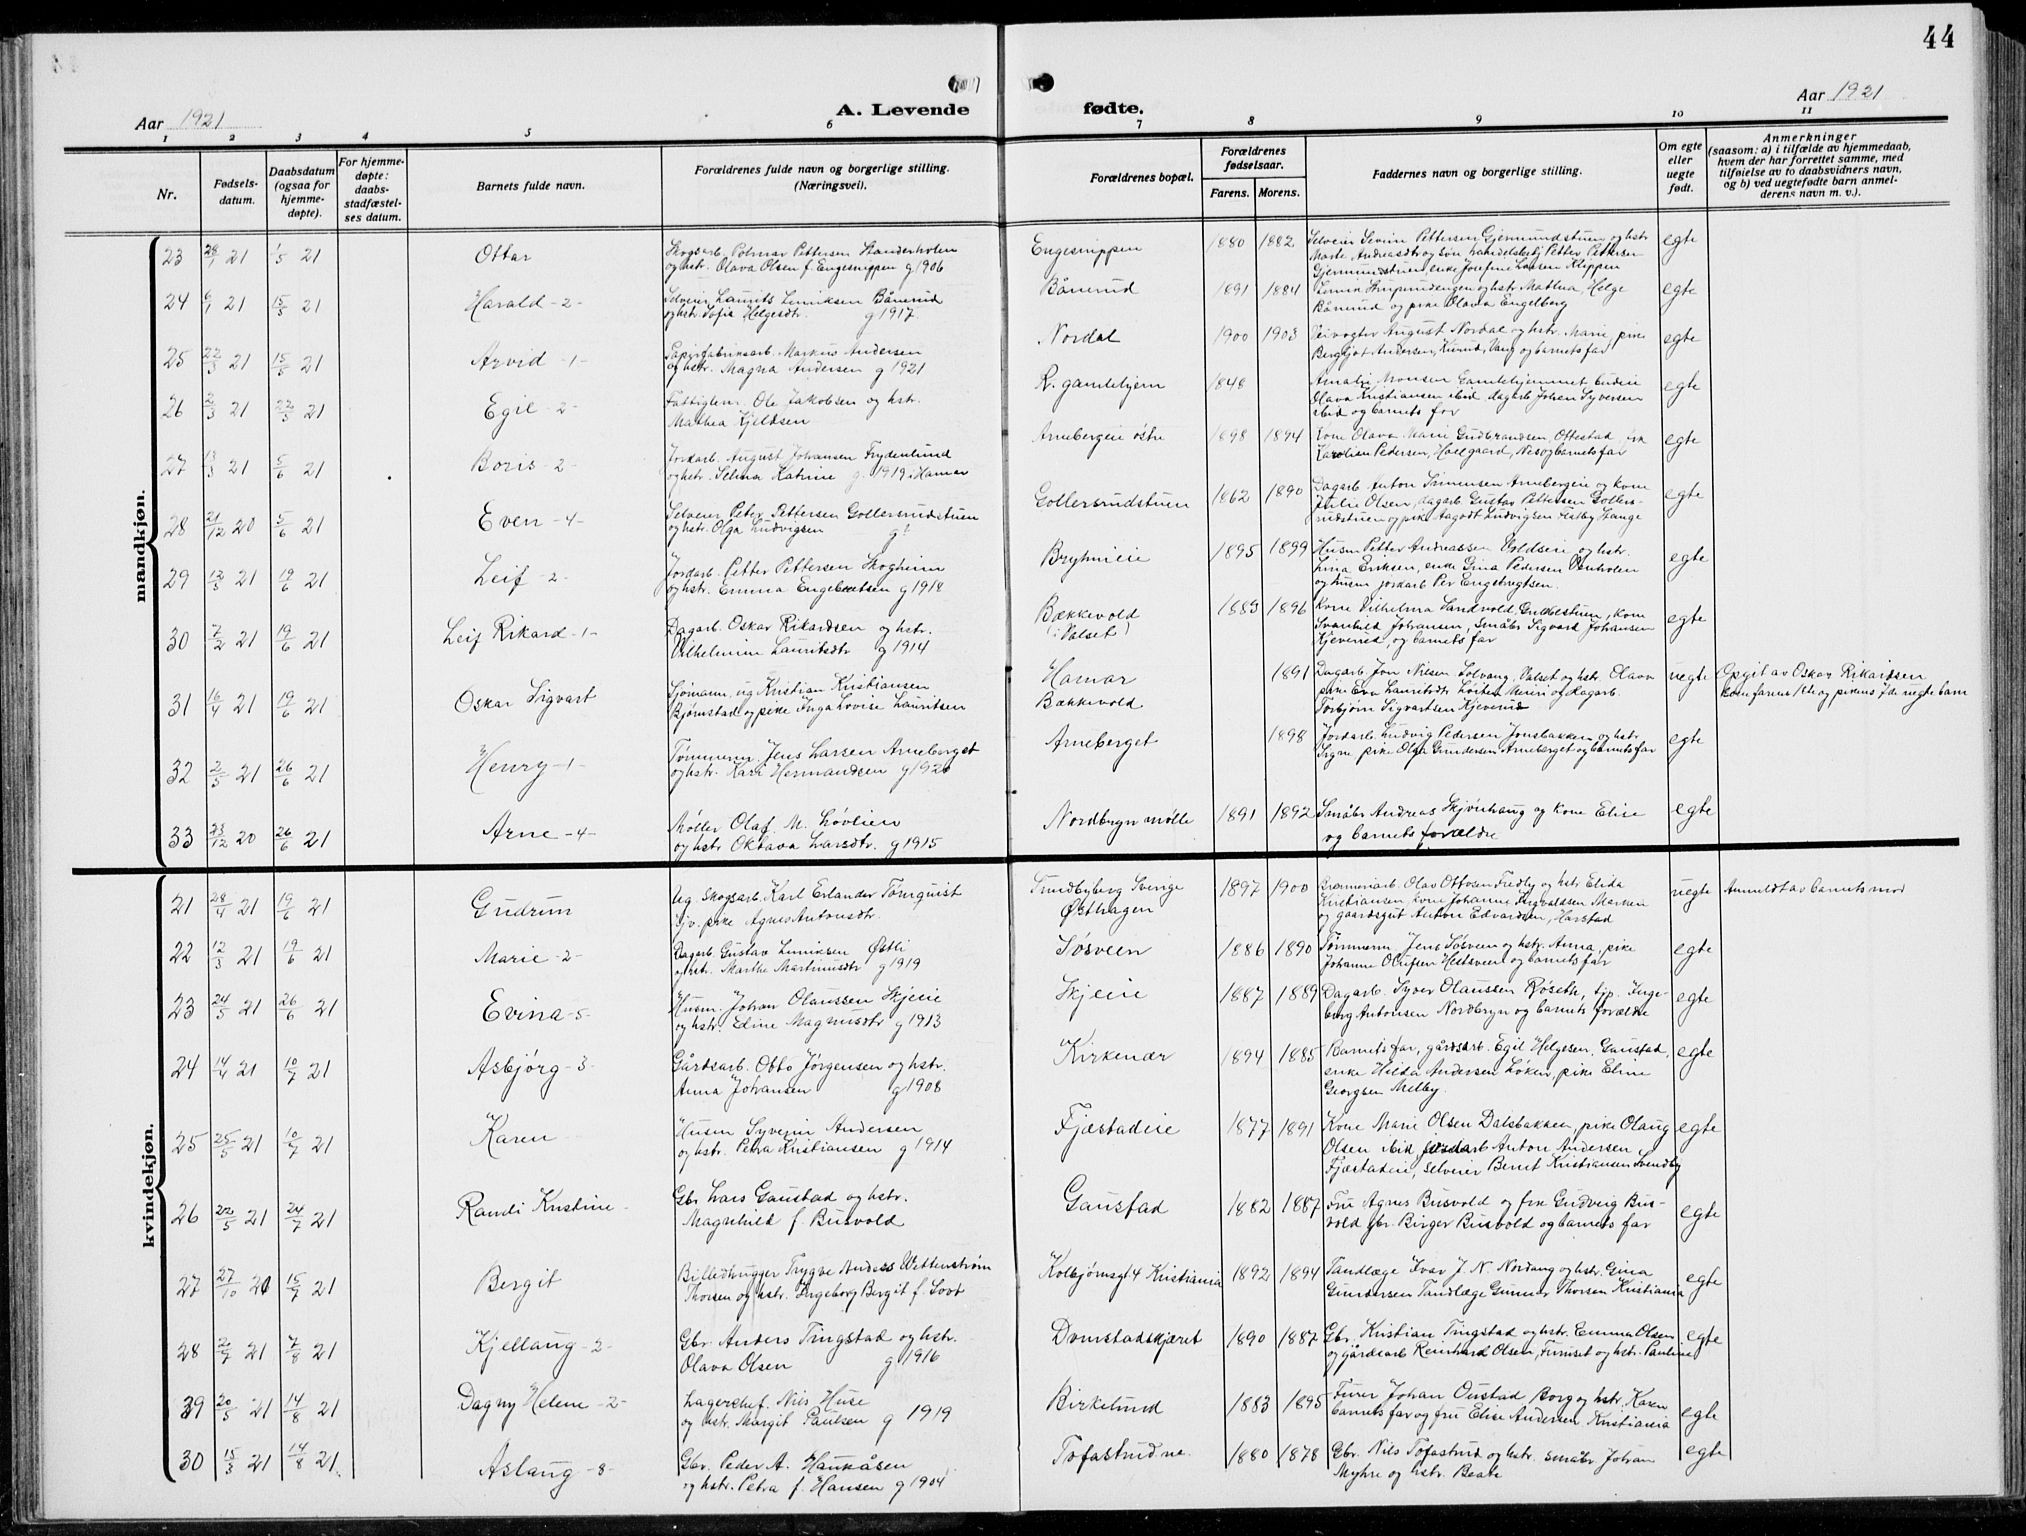 44
Aar 1921
A. Levende fødte.
Aar 1921
1 2 3 4 5 6 7 8 9 10 11
Nr.
Fødsels-datum.
Daabsdatum (ogsaa for hjemme-døpte).
For hjemme-døpte: daabs-stadfæstel-ses datum.
Barnets fulde navn.
Forældrenes fulde navn og borgerlige stilling. (Næringsvei).
Forældrenes bopæl.
Forældrenes fødselsaar.
Farens. Morens.
Faddernes navn og borgerlige stilling.
Om egte eller uegte født.
Anmerkninger
(saasom: a) i tilfælde av hjemmedaab, hvem der har forrettet samme, med tilføielse av to daabsvidners navn, og b) ved uegtefødte barn anmel-derens navn m. v.).
mandkjøn.
23 28/1 21 1/5 21 Ottar
og hstr. Olava Olsen f. Engesnippen g 1906
Engesnippen 1880 1882
Selveier Severin Pettersen Gjermundstuen og hstr
egte
24 6/1 21 15/5 21 Harald - 2 -
Selveier Laurits Linriksen Bånerud
og hstr. Sofie Helgesdtr. g 1917.
Bånerud 1891 1884
Bånerud og pike Olava Engelberg
egte
25 22/3 21 15/5 21 Arvid - 1 -
Papirfabriksarb. Markus Andersen
og hstr. Magna Andersen g 1921
Nordal 1900 1903
Veivogter August Nordal og hstr. Marie, pike
Bergljot Andersen, Kurud, Vang og barnets far
egte
26 2/3 21 22/5 21 Egil - 2 -
Fattiglem Ole Jakobsen og hstr.
Mathea Kjeldsen
R. gamlehjem 1848
Amalie Monsen Gamlehjemmet, budeie
Olava Kristiansen ibid, dagarb Johan Syversen
ibid og barnets far
egte
27 13/3 21 5/6 21 Boris - 2 -
Jordarb. August Johansen Frydenlund
og hstr. Selma Katrine g. 1919 i Hamar
Arnebergeie østre 1898 1894
Kone Olava Marie Gudbrandsen, Ottestad, frk
Karoline Pedersen, Hoelgaard, Nes og barnets far
egte
28 21/12 20 5/6 21 Even - 4 -
Selveier Peter Pettersen Gollersrudstuen
og hstr. Olga Ludvigsen g?
Gollersrudstuen 1862 1890
Dagarb Anton Simensen Arnebergeie og kone
Julie Olsen, dagarb Gustav Pettersen Gollers-
rudstuen og pike Aagodt Ludvigsen Fladby Stange
egte
29 12/5 21 19/6 21 Leif - 2 -
Jordarb. Petter Pettersen Skogheim
og hstr. Emma Engebretsen g 1918
Brynieie 1895 1899
Husm Petter Andreassen Holdseie og hstr.
Lina Eriksen, enke Gina Pedersen Venholen
og husm jordarb Per Engebregtsen.
egte
30 7/2 21 19/6 21 Leif Rikard - 1 -
Dagarb. Oskar Rikardsen og hstr.
Vilhelmine Lauritsdtr g 1914
Bækkevold
(i Valset) 1883 1896
Kone Vilhelma Sandvold, Grubestuen, kone
Svanhild Johansen, Småbr Sigvard Johansen
Kjeverud, og barnets far
egte
31 16/4 21 19/6 21 Oskar Sigvart
Sjømann, ug Kristian Kristiansen
Bjørnstad og pike Inga Lovise Lauritsen
Hamar
Bækkevold 1891
Dagarb. Jon Nilsen Solvang, Valset og hstr. Olava
pike Eva Lauritsdtr Løiten Menri og dagarb.
Torbjørn Sigvartsen Kjeverud
uegte
Opgit av Oskar Rikardsen
32 2/5 21 26/6 21 Henry - 1 -
Tømmerm. Jens Larsen Arneberget
og hstr. Kari Hermandsen g 1920
Arneberget 1898
Jordarb. Ludvig Pedersen Jonsbakken og hstr.
Signe, pike Olga Gundersen Arneberget og barnets far
egte
33 23/12 20 26/6 21 Arne - 4 -
Møller Olaf M. Løvlien
og hstr Oktava Larsdtr. g 1915
Nordbryn mølle 1891 1892
Småbr Andreas Skjønhaug og kone Elise
og barnets forældre
egte
kvindekjøn.
21 28/4 21 19/6 21 Gudrun
Ug. Skogsarb. Karl Erlander Tørnquist
tjv. pike Agnes Antonsdtr.
Sundbyberg Sverige
Østhagen 1897 1900
Brenneriarb. Olav Ottosen Fredly og hstr Elida
Kristiansen, kone Johanne Sigvaldsen Marken
og gaardsgut Anton Edvardsen, Harstad
uegte
Anmeldt av barnets mor
22 12/3 21 19/6 21 Marie - 2 -
Dagarb. Gustav Linriksen Østli
og hstr. Marthe Martinusdtr g 1919
Søsveen 1886 1890
Tømmerm. Jens Søsveen og hstr. Anna, pike
Johanne Olufsen Hestsveen og barnets far
egte
23 24/5 21 26/6 21 Evina - 5 -
Husm. Johan Olaussen Skjeie
og hstr. Edine Magnusdtr g 1913
Skjeie 1887 1889
Dagarb. Syver Olaussen Røseth, tjp. Inge-
borg Antonsen Nordbryn og barnets forældre
egte
24 14/4 21 10/7 21 Asbjørg - 3 -
Gårdsarb. Otto Jørgensen og hstr.
Anna Johansen g 1908
Kirkenær 1894 1885
Barnets far, gårdsarb. Egil Helgesen, Gaustad,
enke Hilda Andersen Løken, pike Eline
Georgsen Melby.
egte
25 25/5 21 10/7 21 Karen
Husm Syverin Andersen
og hstr. Petra Kristiansen g 1914
Fjæstadeie 1877 1891
Kone Marie Olsen Dalsbakken, pike Olaug
Olsen ibid, jordarb Anton Andersen
Fjæstadeie, selveier Bernt Kristiansen Svendby
egte
26 22/5 21 24/7 21 Randi Kristine
Gbr Lars Gaustad og hstr.
Magnhild f. Busvold
Gaustad 1882 1887
Fru Agnes Busvold og frk Gudveig Bus-
vold gbr. Birger Busvold og barnets far
egte
27 27/10 20 15/7 21 Bergit
Billedhugger Trygve Anders Wetterstrøm
Thorsen og hstr. Ingeborg Bergit f. Loot
Kolbjørnsgt 4 Kristiania 1892 1894
Tandlæge Ivar J. N. Nordang og hstr. Gina
Gundersen Tandlæge Gunnar Thorsen Kristiania
egte
28 2/7 21 7/8 21 Kjellaug - 2 -
Gbr. Anders Tingstad og hstr.
Olava Olsen g 1916
Domstadskjæret 1890 1887
Gbr. Kristian Tingstad og hstr. Emma Olsen
og gårdsarb Reinhard Olsen, Furuset og hstr. Pauline
egte
39 20/5 21 14/8 21 Dagny Helene - 2 -
Lagerchef. Nils Huse
og hstr. Margit Paulsen g 1919
Birkelund 1883 1895
Furer Johan Oustad Borg og hstr. Karen
barnets far og fru Elise Andersen Kristiania
egte
30 15/3 21 14/8 21 Aslaug - 8 -
Gbr. Peder A. Haukåsen
og hstr. Petra f. Hansen g 1904
Tofastrud ne. 1880 1878
Gbr. Nils Tofastrud og hstr. småbr. Johan
Myhre og hstr. Beate
egte